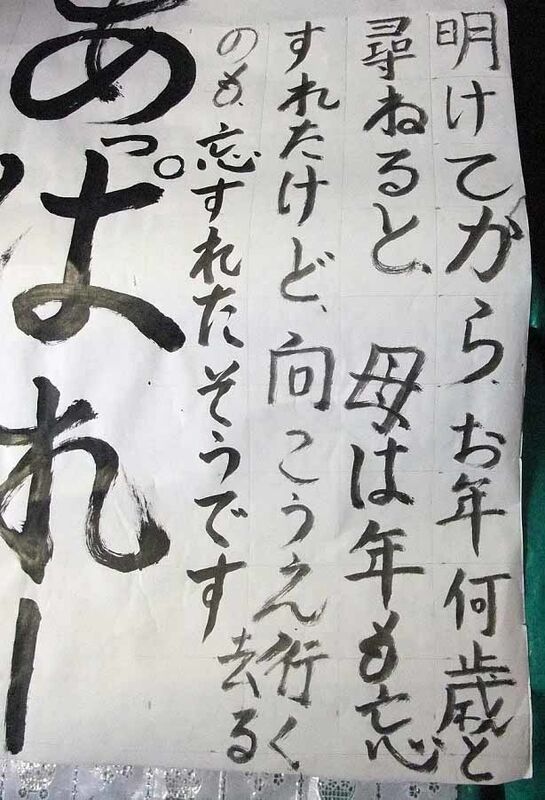 明けてから、お年何歳と
尋ねると、母は年も忘
すれたけど、向こうえ行く
去る
のも、忘すれたそうです
あっぱれー